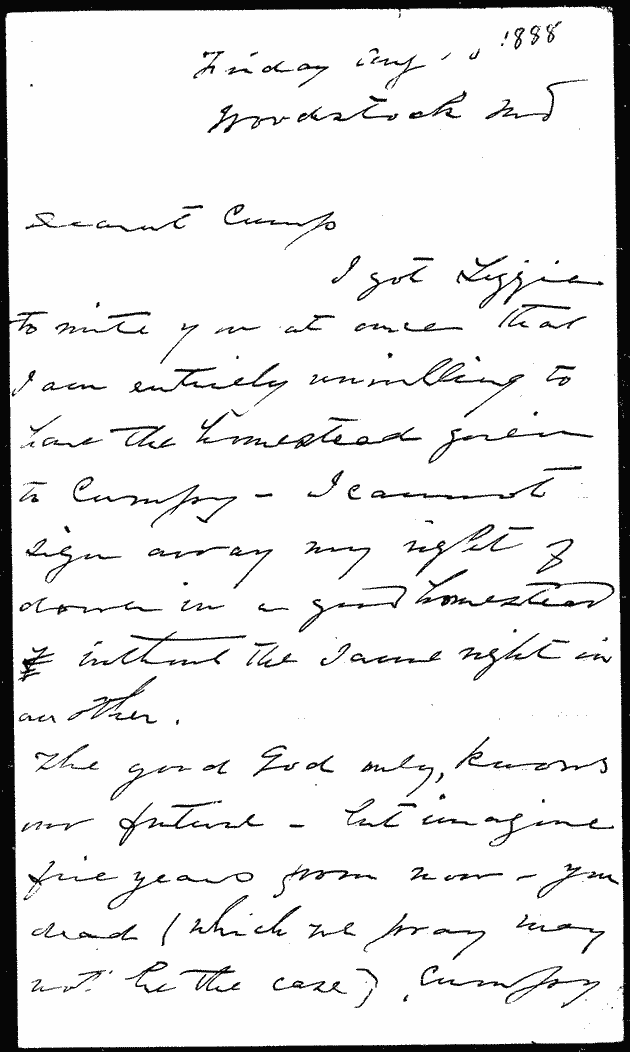 Friday Aug 10 1888
Woodstock Md
Dearest Cump
I got Lizzie
to write you at once that
I am entirely unwilling to
have the homestead given
to Cumpsy - I cannot
sign away my right of
dower in a good homestead
without the same right in
another.
The good God only, knows
our future - but imagine
five years from now - you
dead (which we pray may
not be the case), Cumpsy